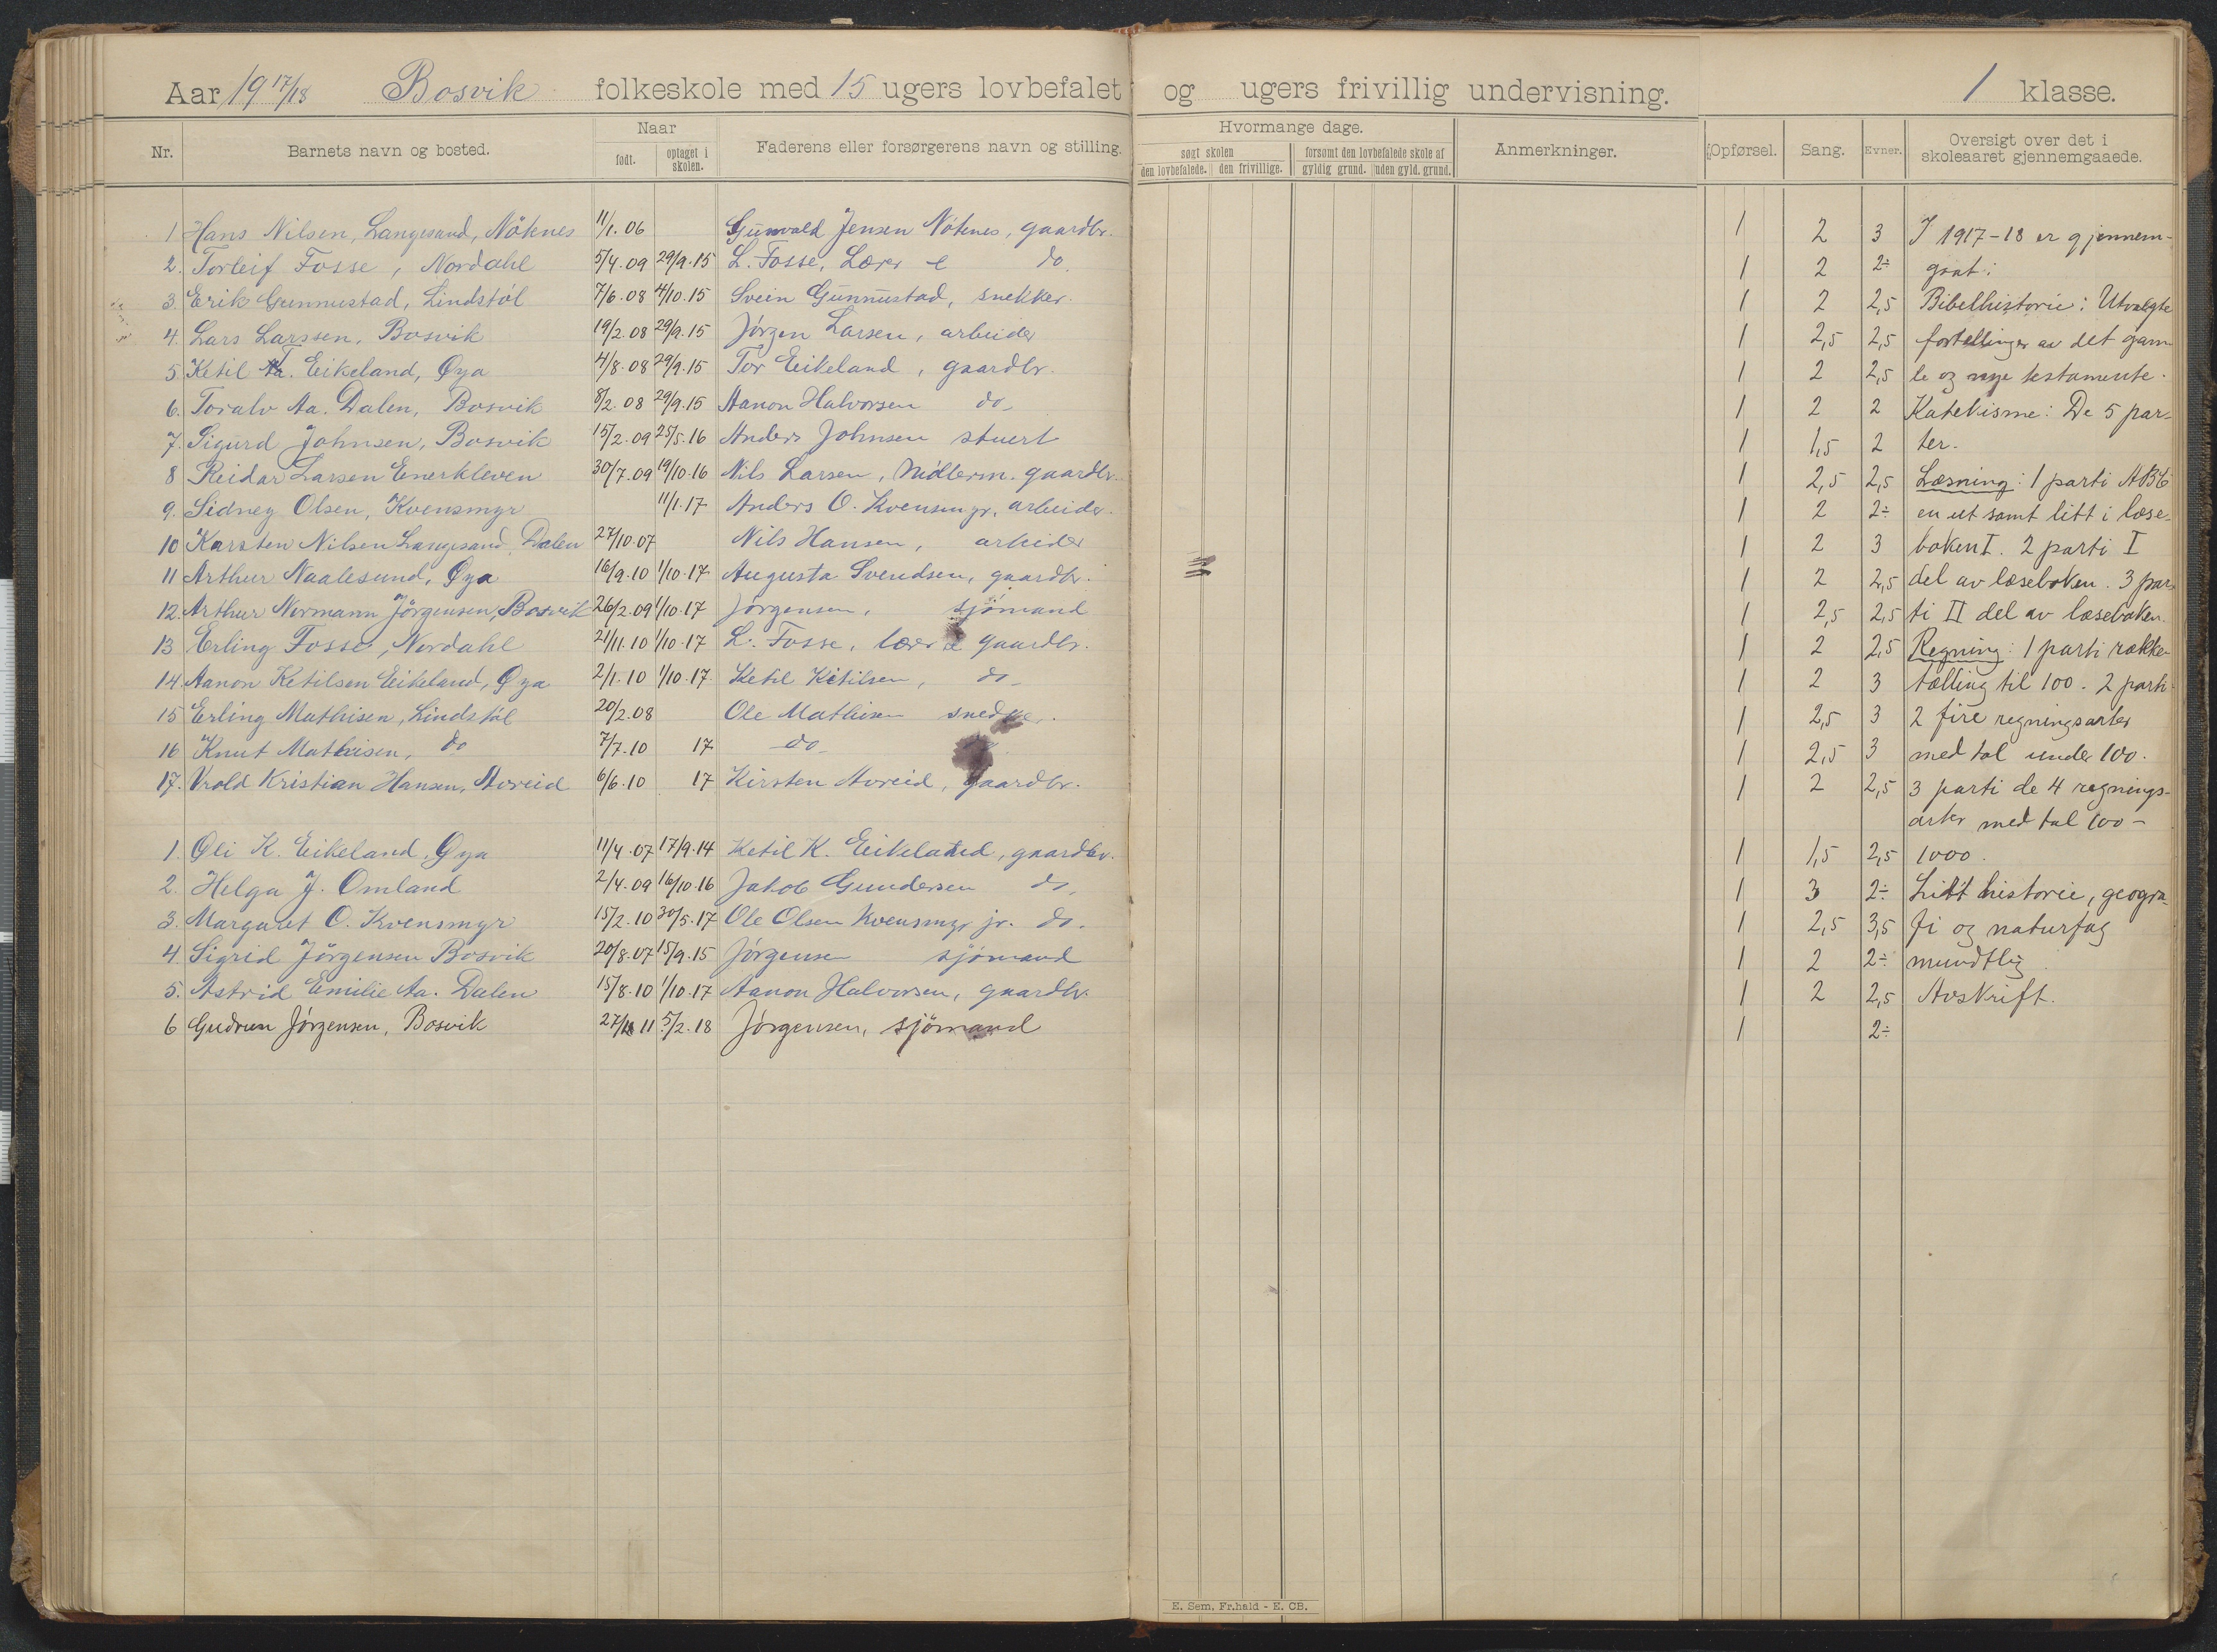 Aar 19 17/18 Bosvik folkeskole med 15 ugers lovbefalet og ugers frivillig undervisning. 1 klasse.
Nr. Barnets navn og bosted. Naar født. optaget i skolen. Faderens eller forsørgerens navn og stilling. Hvormange dage. søgt skolen den lovbefalede. den frivillige. forsømt den lovbefalede skole af gyldig grund. uden gyld. grund. Anmerkninger. Opførsel. Sang. Evner. Oversigt over det i skoleaaret gjennemgaaede.
1 Hans Nilsen, Langesand, Nöknes 11/1.06 Gunvald Jensen Nötenes, gaardbr. 1 2 3 I 1917-18 er gjennem-
2. Torleif Fosse, Nordahl 5/4.09 29/9.15 L. Fosse, Lærer e do. 1 2 2÷ gaat:
3. Erik Gunnustad, Lindstöl 7/6.08 4/10.15 Svein Gunnustad, snekker. 1 2 2,5 Bibelhistorie: Utvalgte
4. Lars Larssen, Bosvik 19/2.08 29/9.15 Jörgen Larsen, arbeider 1 2,5 2,5 fortellinger av det gam-
5. Ketil T. Eikeland, Øya 4/8.08 29/9.15 Tor Eikeland, gaardbr. 1 2 2,5 le og nye testamente.
6. Toralv Aa. Dalen, Bosvik 8/2.08 29/9.15 Aanon Halvorsen do- 1 2 2 Katekisme: De 5 par-
7. Sigurd Johnsen, Bosvik 15/2.09 25/5.16 Anders Johnsen stuert 1 1,5 2 ter.
8 Reidar Larsen Enerkleven 30/7.09 19/10.16 Nils Larsen, gaardbr. 1 2,5 2,5 Læsning: 1 parti ABC
9. Sidney Olsen, Kvensmyr 11/1.17 Anders O. Kvensmyr, arbeider. 1 2 2÷ en ut samt litt i læse-
10 Karsten Nilsen Langesand, Dalen 27/10.07 Nils Hansen, arbeider 1 2 3 boken I. 2 parti I
11 Arthur Naalesund, Øya 16/9.10 1/10.17 Augusta Svendsen, gaardbr. 1 2 2,5 del av læseboken. 3 par-
12. Arthur Normann Jörgensen, Bosvik 26/2.09 1/10.17 Jörgensen, sjömand 1 2,5 2,5 ti II del av læseboken.
13 Erling Fosse, Nordahl 21/11.10 1/10.17 L. Fosse, lærer e gaardbr. 1 2 2,5 Regning: 1 parti række-
14. Aanon Ketilsen Eikeland, Øya 2/1.10 1/10.17 Ketil Ketilsen, do- 1 2 3 tælling til 100. 2 parti
15 Erling Mathisen, Lindstöl 20/2.08 Ole Mathisen snedker. 1 2,5 3 2 fire regningsarter
16 Knut Mathisen, do 7/7.10 17 do- 1 2,5 3 med tal under 100.
17. Vrold Kristian Hansen, Avreid 6/6.10 17 Kirsten Avreid, gaardbr. 1 2 2,5 3 parti de 4 regnings-
arter med tal 100-
1. Oli K. Eikeland, Øya 11/4.07 17/9.14 Ketil K. Eikeland, gaardbr. 1 1,5 2,5 1000.
2. Helga J. Omland 2/4.09 16/10.16 Jakob Gundersen do, 1 3 2÷ Litt historie, geogra-
3. Margaret O. Kvensmyr 15/2.10 30/5.17 Ole Olsen Kvensmyr jr. do. 1 2,5 3,5 fi og naturfag
4. Sigrid Jörgensen Bosvik 20/8.07 15/9.15 Jörgensen sjömand 1 2 2÷ mundtlig.
5. Astrid Emilie Aa. Dalen 15/8.10 1/10.17 Aanon Halvorsen, gaardbr. 1 2 2,5 Avskrift.
6 Gudrun Jörgensen, Bosvik 27/ 11 5/2.18 Jörgensen, sjömand 1 2÷
E. Sem, Fr.hald - E. CB.